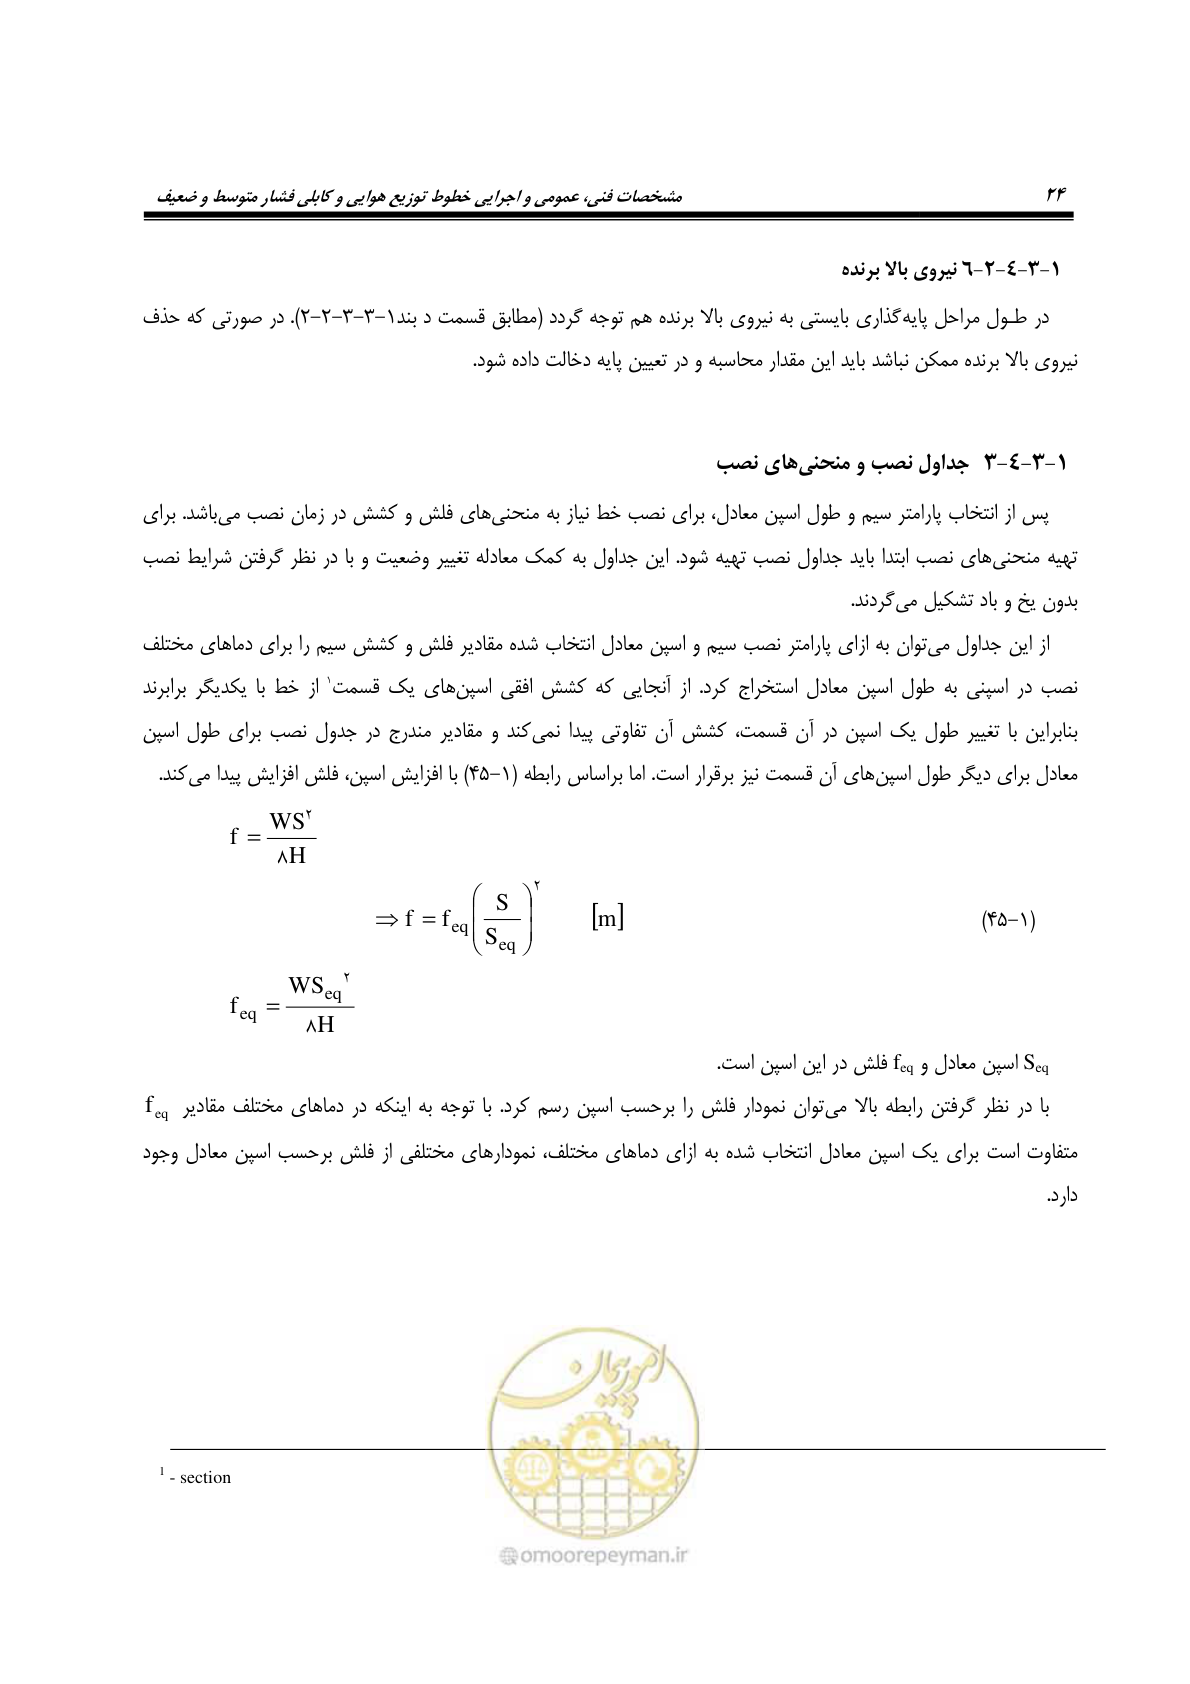 ۲۴
مشخصات فنی، عمومی و اجرایی خطوط توزیع هوایی و کابلی فشار متوسط و ضعیف
۱-۳-٤-۲-٦ نیروی بالا برنده
در طـول مراحل پایه‌گذاری بایستی به نیروی بالا برنده هم توجه گردد (مطابق قسمت د بند۱-۳-۳-۲-۲). در صورتی که حذف
نیروی بالا برنده ممکن نباشد باید این مقدار محاسبه و در تعیین پایه دخالت داده شود.
۱-۳-٤-۳ جداول نصب و منحنی‌های نصب
پس از انتخاب پارامتر سیم و طول اسپن معادل، برای نصب خط نیاز به منحنی‌های فلش و کشش در زمان نصب می‌باشد. برای
تهیه منحنی‌های نصب ابتدا باید جداول نصب تهیه شود. این جداول به کمک معادله تغییر وضعیت و با در نظر گرفتن شرایط نصب
بدون یخ و باد تشکیل می‌گردند.
از این جداول می‌توان به ازای پارامتر نصب سیم و اسپن معادل انتخاب شده مقادیر فلش و کشش سیم را برای دماهای مختلف
نصب در اسپنی به طول اسپن معادل استخراج کرد. از آنجایی که کشش افقی اسپن‌های یک قسمت۱ از خط با یکدیگر برابرند
بنابراین با تغییر طول یک اسپن در آن قسمت، کشش آن تفاوتی پیدا نمی‌کند و مقادیر مندرج در جدول نصب برای طول اسپن
معادل برای دیگر طول اسپن‌های آن قسمت نیز برقرار است. اما براساس رابطه (۱-۴۵) با افزایش اسپن، فلش افزایش پیدا می‌کند.
f = WS^۲ / ۸H
⇒ f = f_eq (S / S_eq)^۲ [m] (۱-۴۵)
f_eq = WS_eq^۲ / ۸H
S_eq اسپن معادل و f_eq فلش در این اسپن است.
با در نظر گرفتن رابطه بالا می‌توان نمودار فلش را برحسب اسپن رسم کرد. با توجه به اینکه در دماهای مختلف مقادیر f_eq
متفاوت است برای یک اسپن معادل انتخاب شده به ازای دماهای مختلف، نمودارهای مختلفی از فلش برحسب اسپن معادل وجود
دارد.
امور پیمان
1 - section
@omoorepeyman.ir